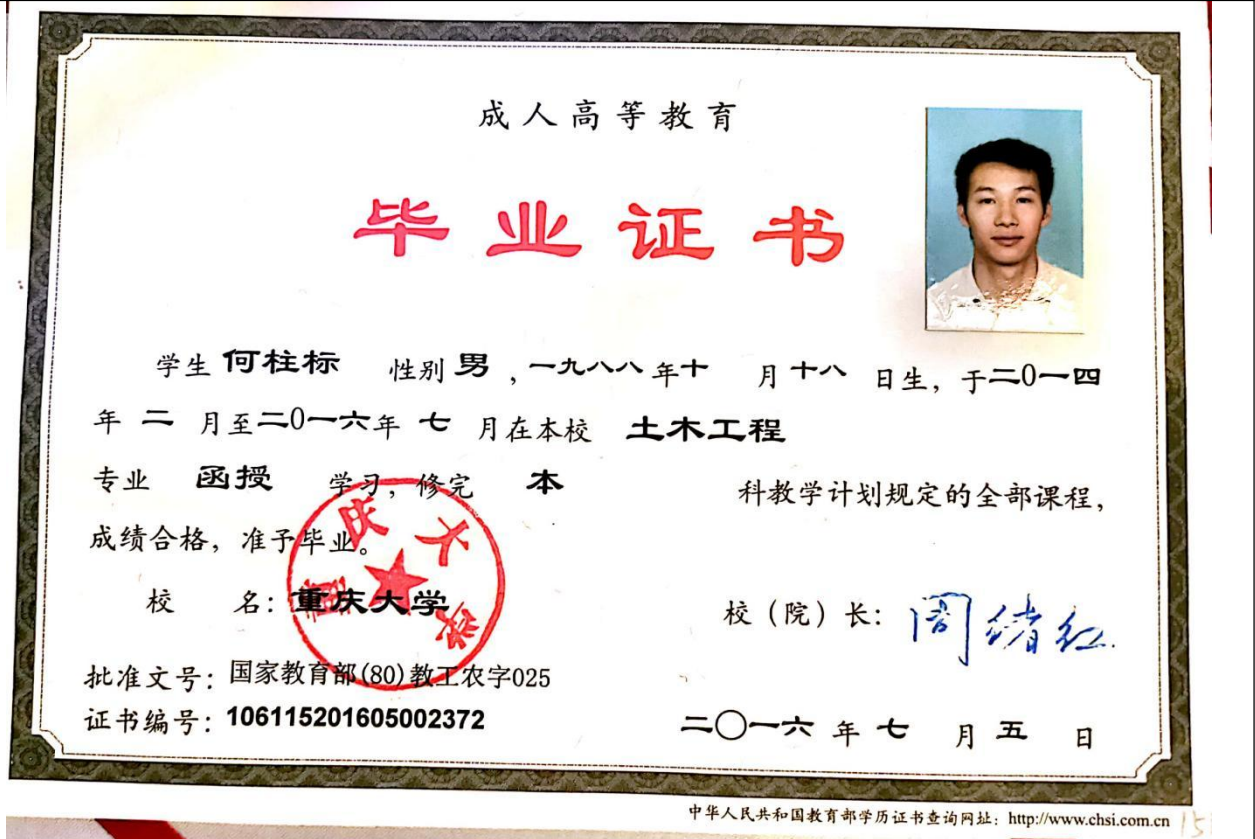 成人高等教育
毕业证书
学生 何柱标 性别 男 , 一九八八 年 十 月 十八 日生, 于二0一四
年 二 月至二0一六年 七 月在本校 土木工程
专业 函授 学习, 修完 本 科教学计划规定的全部课程,
成绩合格, 准予毕业。
重庆大学
校 名: 重庆大学
校（院）长: 周绪红
批准文号: 国家教育部(80)教工农字025
证书编号: 106115201605002372
二〇一六 年 七 月 五 日
中华人民共和国教育部学历证书查询网址: http://www.chsi.com.cn
15